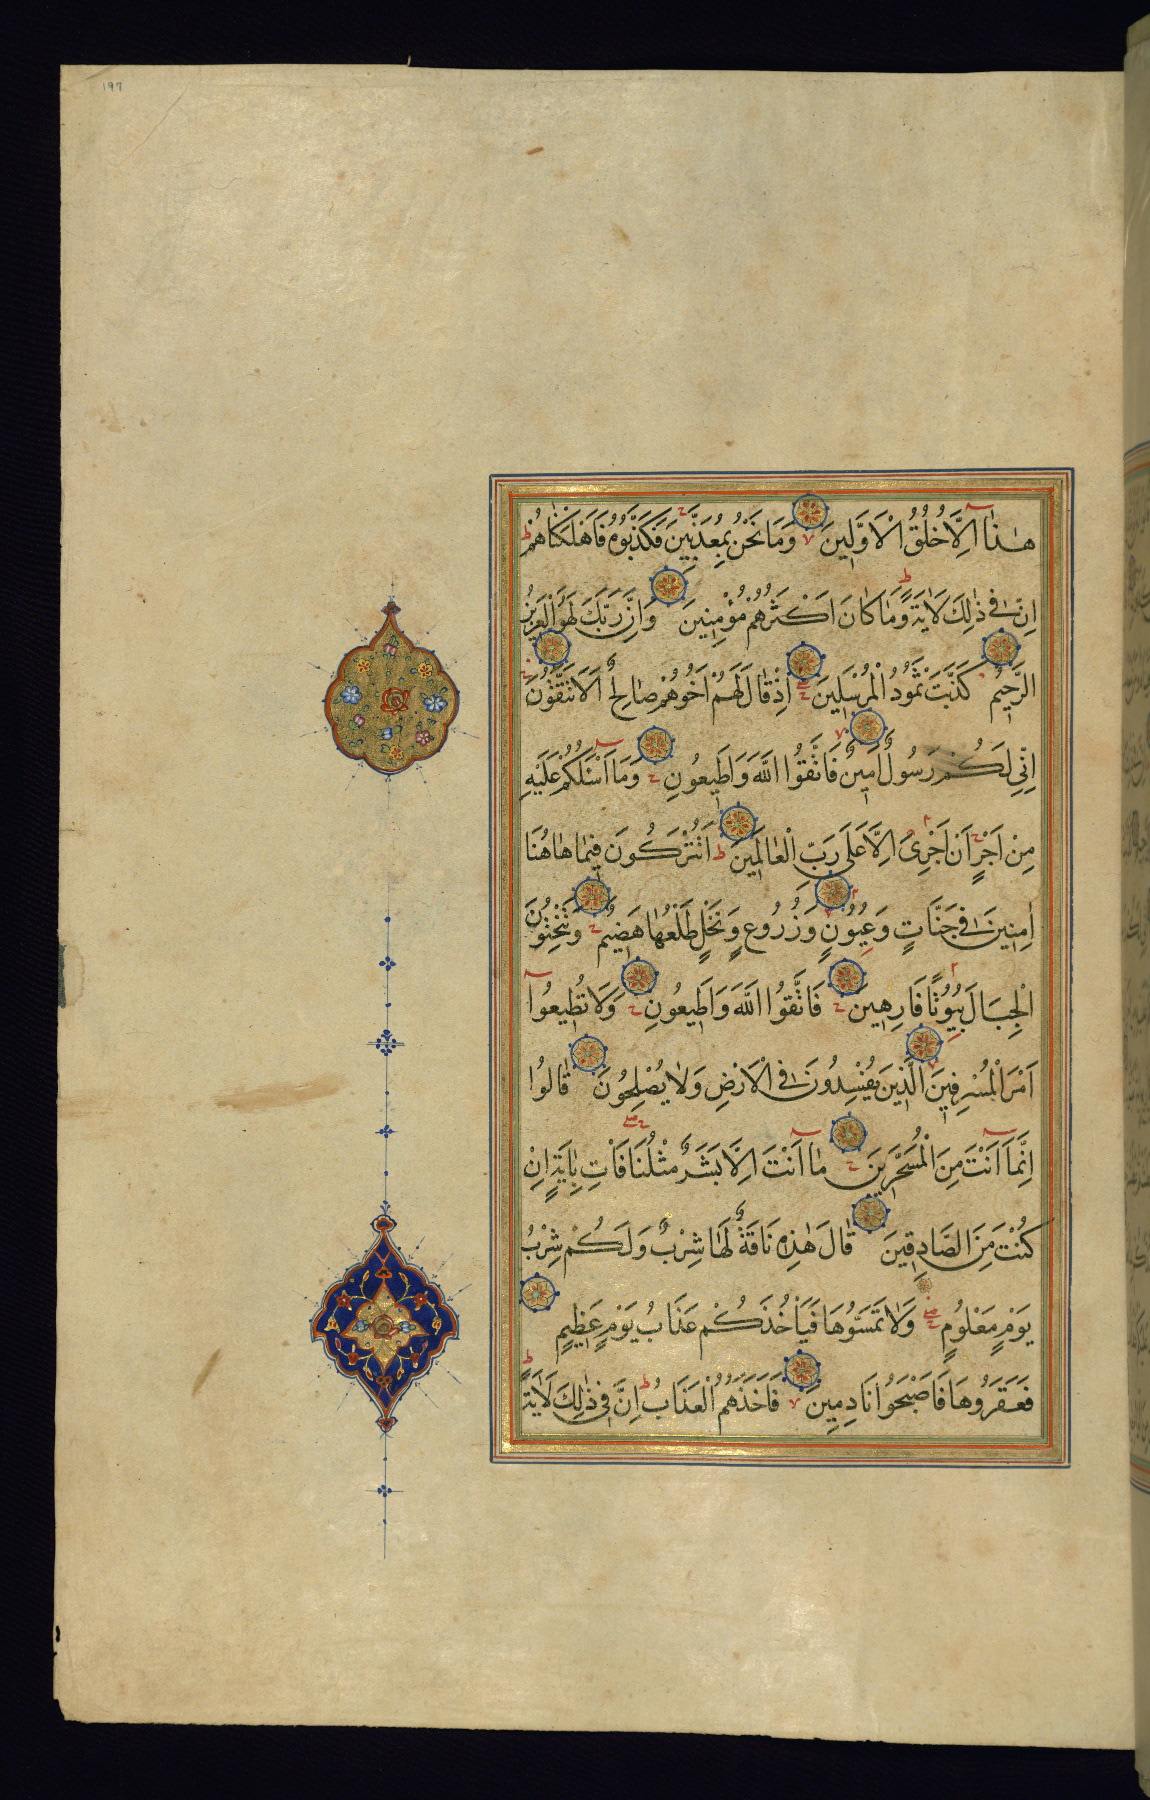 ١٩٧
هٰذَا اِلَّا خُلُقُ الْاَوَّلِينَ وَمَا نَحْنُ بِمُعَذَّبِينَ فَكَذَّبُوهُ فَاَهْلَكْنَاهُمْ
اِنَّ فِى ذٰلِكَ لَاٰيَةً وَمَا كَانَ اَكْثَرُهُمْ مُؤْمِنِينَ وَاِنَّ رَبَّكَ لَهُوَ الْعَزِيزُ
الرَّحِيمُ كَذَّبَتْ ثَمُودُ الْمُرْسَلِينَ اِذْ قَالَ لَهُمْ اَخُوهُمْ صَالِحٌ اَلَا تَتَّقُونَ
اِنِّى لَكُمْ رَسُولٌ اَمِينٌ فَاتَّقُوا اللّٰهَ وَاَطِيعُونِ وَمَا اَسْئَلُكُمْ عَلَيْهِ
مِنْ اَجْرٍ اِنْ اَجْرِىَ اِلَّا عَلٰى رَبِّ الْعَالَمِينَ اَتُتْرَكُونَ فِيمَا هَاهُنَا
اٰمِنِينَ فِى جَنَّاتٍ وَعُيُونٍ وَزُرُوعٍ وَنَخْلٍ طَلْعُهَا هَضِيمٌ وَتَنْحِتُونَ
الْجِبَالَ بُيُوتًا فَارِهِينَ فَاتَّقُوا اللّٰهَ وَاَطِيعُونِ وَلَا تُطِيعُوا
اَمْرَ الْمُسْرِفِينَ الَّذِينَ يُفْسِدُونَ فِى الْاَرْضِ وَلَا يُصْلِحُونَ قَالُوا
اِنَّمَا اَنْتَ مِنَ الْمُسَحَّرِينَ مَا اَنْتَ اِلَّا بَشَرٌ مِثْلُنَا فَاْتِ بِاٰيَةٍ اِنْ
كُنْتَ مِنَ الصَّادِقِينَ قَالَ هٰذِهِ نَاقَةٌ لَهَا شِرْبٌ وَلَكُمْ شِرْبُ
يَوْمٍ مَعْلُومٍ وَلَا تَمَسُّوهَا فَيَاْخُذَكُمْ عَذَابُ يَوْمٍ عَظِيمٍ
فَعَقَرُوهَا فَاَصْبَحُوا نَادِمِينَ فَاَخَذَهُمُ الْعَذَابُ اِنَّ فِى ذٰلِكَ لَاٰيَةً